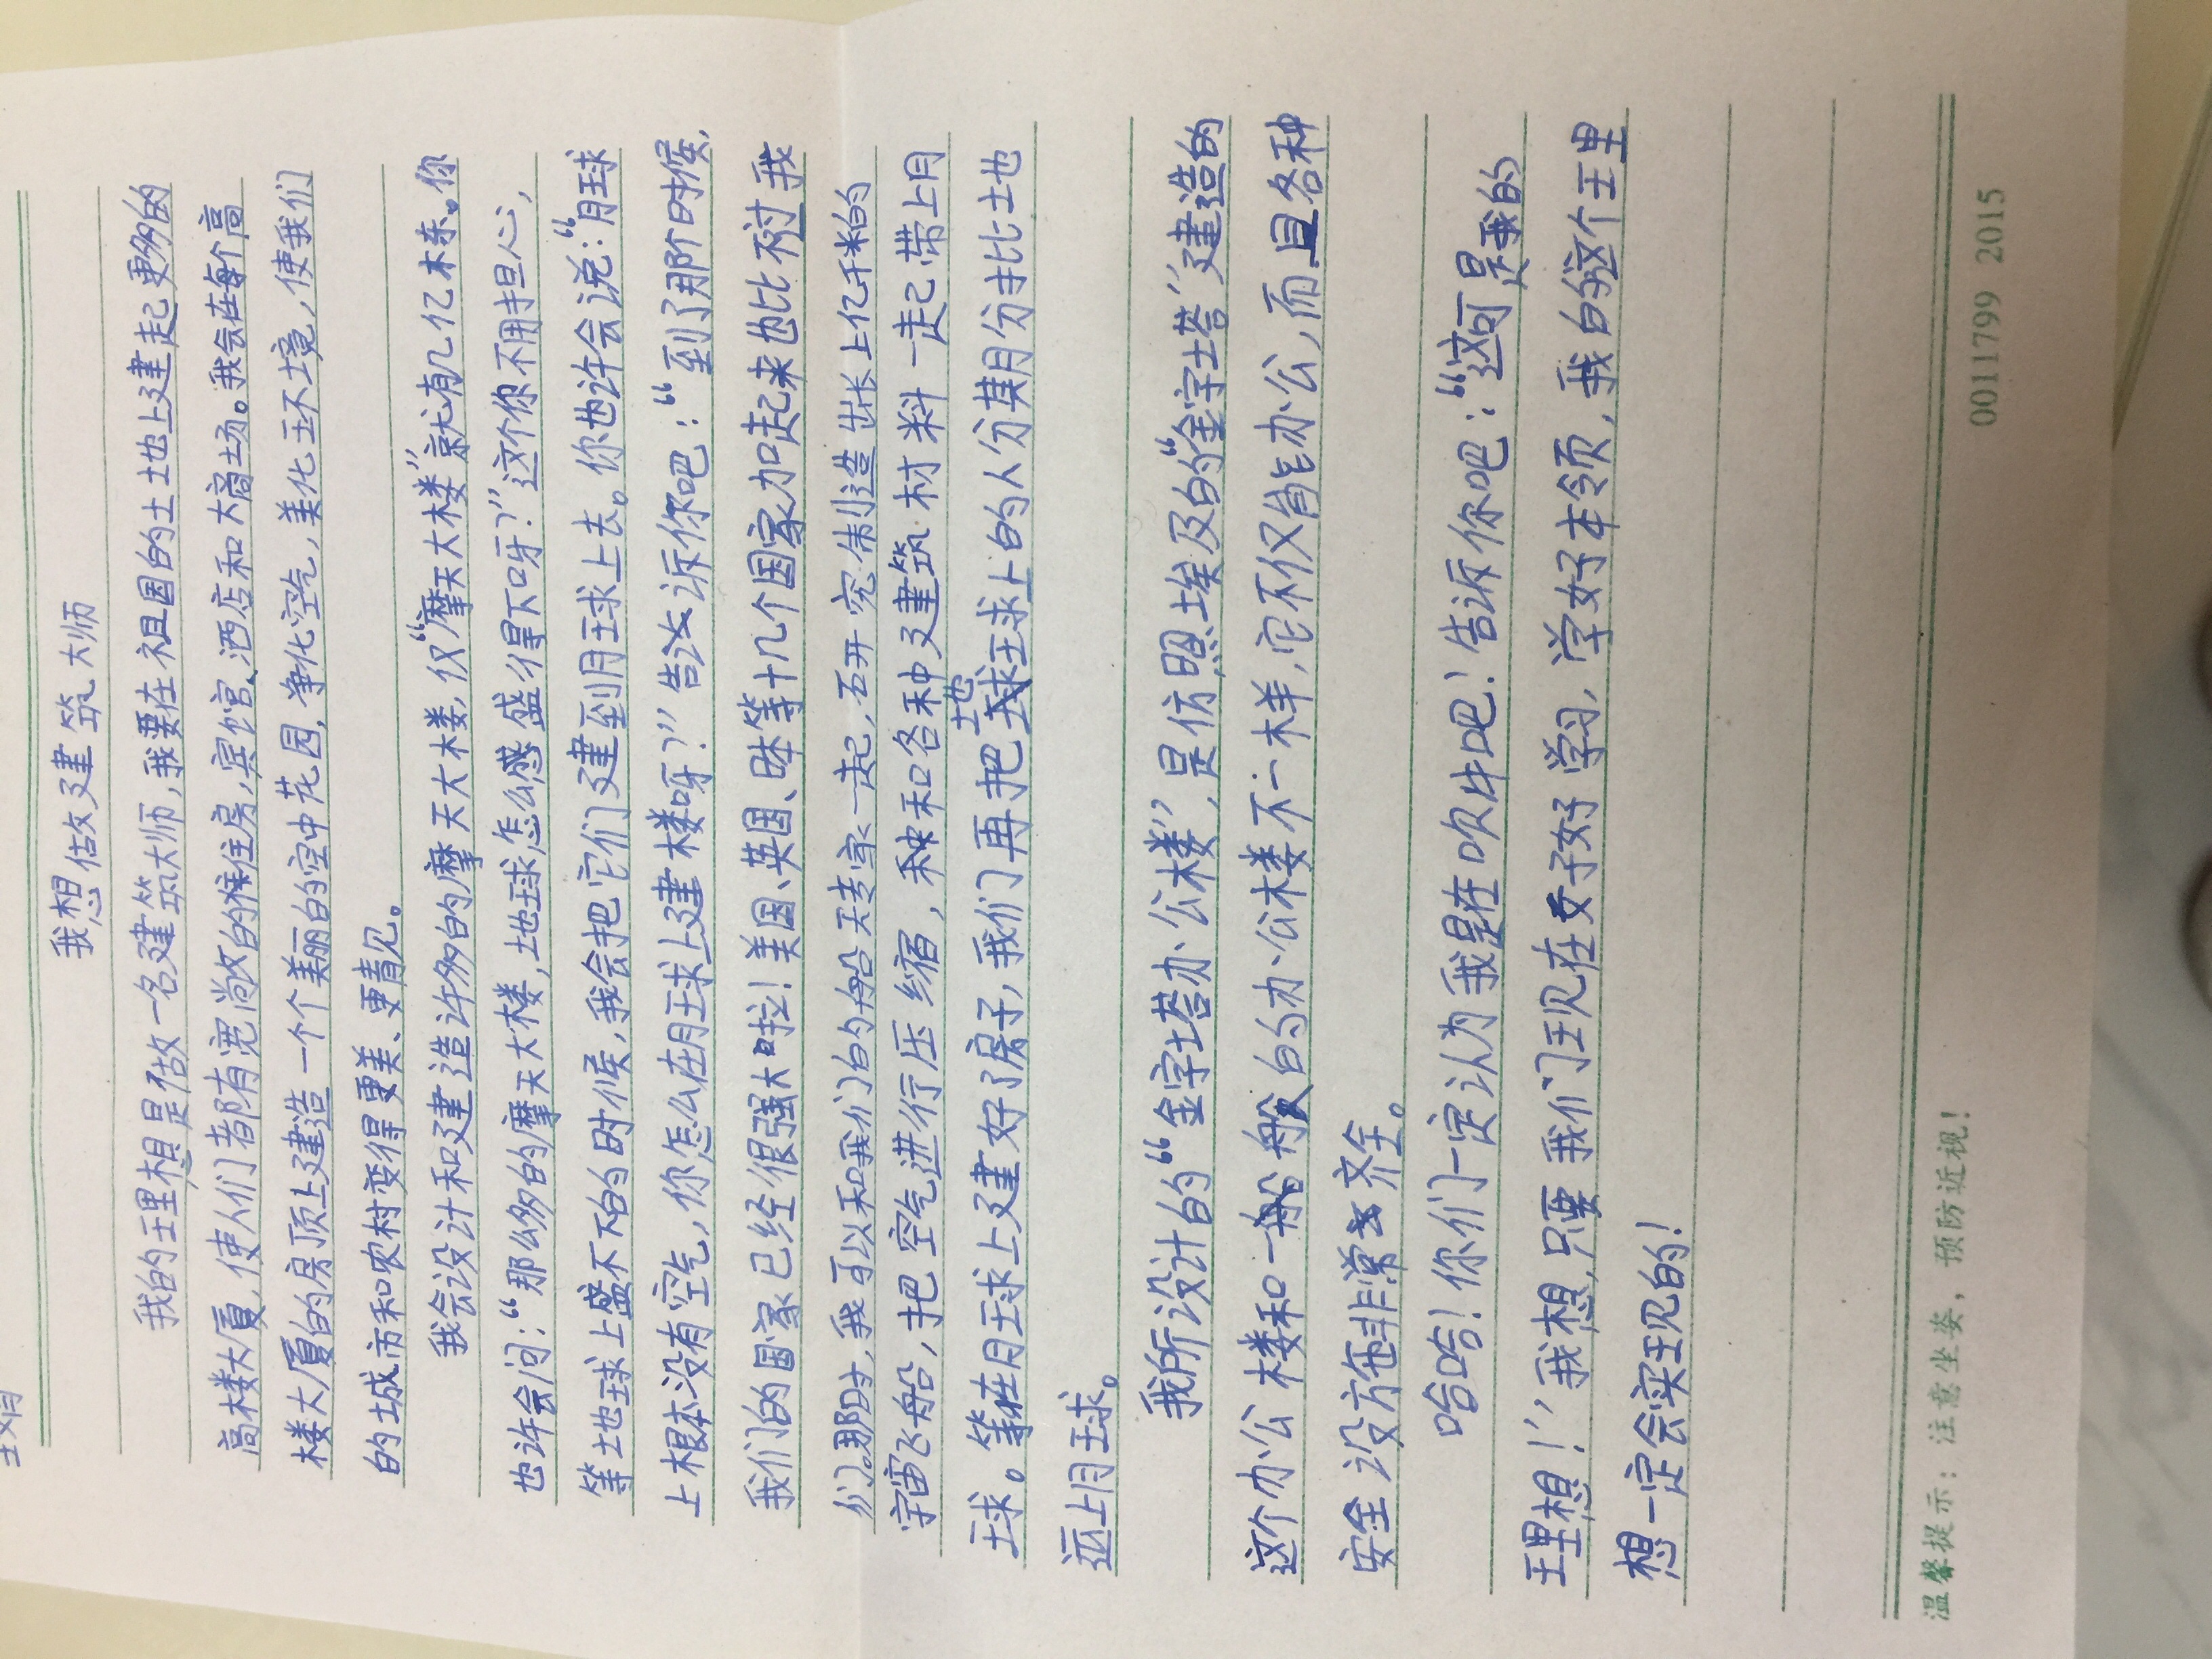 我想做建筑大师
我的理想是做一名建筑大师,我要在祖国的土地上建起更多的
高楼大厦,使人们都有宽敞的住房,宾馆、酒店和大商场。我会在每个高
楼大厦的房顶上建造一个个美丽的空中花园,净化空气,美化环境,使我们
的城市和农村变得更美、更靓。
我会设计和建造许多的摩天大楼,仅“摩天大楼”就有几亿栋。你
也许会问:“那么多的摩天大楼,地球怎么盛得下呀?”这个你不用担心,
等地球上盛不下的时候,我会把它们建到月球上去。你也许会说:“月球
上根本没有空气,你怎么在月球上建楼呀?”告诉你吧:“到了那个时候,
我们的国家已经很强大啦!美国、英国、日本等十几个国家加起来也比不过我
们。那时,我可以和我们的船天专家一起,研究制造出长上亿千米的
宇宙飞船,把空气进行压缩,和各种建筑材料一起带上月
球。等在月球上建好了房子,我们再把地球上的人分期分批地
运上月球。
我所设计的“金字塔办公楼”,是仿照埃及的“金字塔”建造的
这个办公楼和一般的办公楼不一样,它不仅能办公,而且各种
安全设施非常齐全。
哈哈!你们一定认为我是在吹牛吧!告诉你吧:“这可是我的
理想!”我想,只要我们现在好好学习,学好本领,我的这个理
想一定会实现的!
温馨提示:注意坐姿,预防近视!
0011799 2015